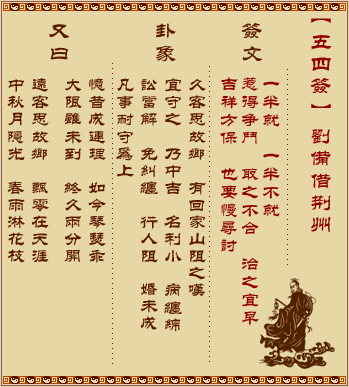 【五四簽】 劉備借荊州
簽文
一半就 一半不就
惹得爭鬥 敢之不合 治之宜早
吉祥方保 也要慢尋討
卦象
久客思故鄉 有回家山阻之嘆
宜守之 乃中吉 名利小 病纏綿
訟當解 免糾纏 行人阻 婚未成
凡事耐守爲上
又曰
憶昔成連理 如今琴瑟乖
大限雖未到 終久兩分開
遠客思故鄉 飄零在天涯
中秋月隱光 春雨淋花枝